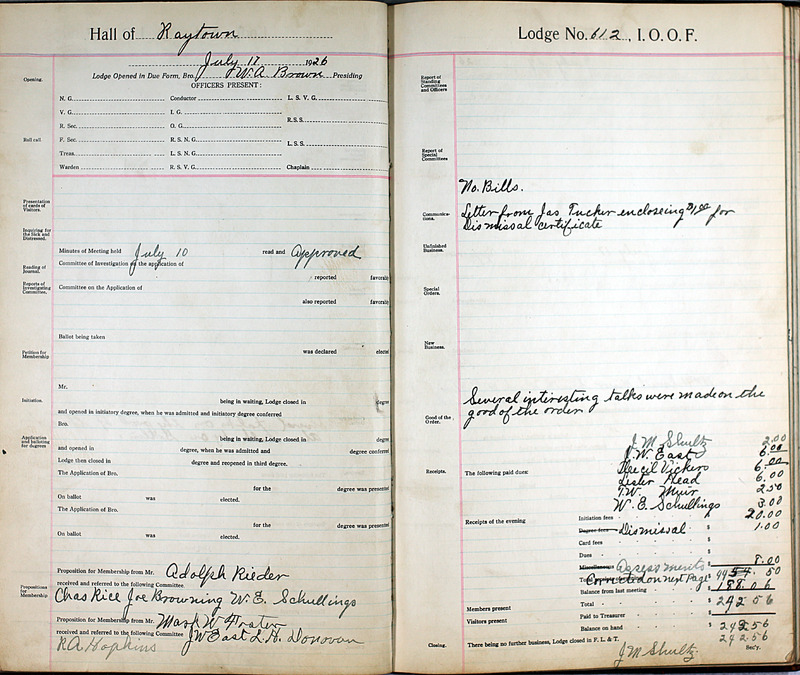 Hall of Raytown
July 17 1926
Opening.
Lodge Opened in Due Form, Bro. W. A Brown Presiding
OFFICERS PRESENT:
N. G. Conductor L. S. V. G.
V. G. I. G.
R. S. S.
R. Sec. O. G.
Roll call.
F. Sec. R. S. N. G.
L. S. S.
Treas. L. S. N. G.
Warden R. S. V. G. Chaplain
Presentation of cards of Visitors.
Inquiring for the Sick and Distressed.
Minutes of Meeting held July 10 read and Approved
Reading of Journal.
Committee of Investigation on the application of
reported favorable
Reports of Investigating Committee.
Committee on the Application of
also reported favorable
Ballot being taken
Petition for Membership
was declared elected
Mr.
Initiation.
being in waiting, Lodge closed in degree
and opened in initiatory degree, when he was admitted and initiatory degree conferred
Bro.
Application and balloting for degrees
being in waiting, Lodge closed in degree
and opened in degree, when he was admitted and degree conferred
Lodge then closed in degree and reopened in third degree.
The Application of Bro.
for the degree was presented
On ballot was elected.
The Application of Bro.
for the degree was presented
On ballot was elected.
Propositions for Membership
Proposition for Membership from Mr. Adolph Rieder
received and referred to the following Committee
Chas Rice Joe Browning W. E. Schullings
Proposition for Membership from Mr. Mark W
received and referred to the following Committee J W East L. H. Donovan
R A Hopkins
Lodge No. 612, I. O. O. F.
Report of Standing Committees and Officers
Report of Special Committees
No. Bills.
Communications.
Letter from Jas Tucker encloseing $1.00 for
Dismissal certificate
Unfinished Business.
Special Orders.
New Business.
Good of the Order.
Several interesting talks were made on the
good of the order
Receipts.
The following paid dues:
J M Shultz 2.00
J. W. East 6.00
Vickers 6.00
Lister Read 6.00
T. W. Muir 2.50
W. E. Schullings 3.00
Receipts of the evening
Initiation fees $ 20.00
Degree fees Dismissal $ 1.00
Card fees $
Dues $
Miscellaneous Assessments $ 8.00
Corrected on next Page 44 54.50
Balance from last meeting 188 06
Members present
Total 242 56
Visitors present
Paid to Treasurer
Balance on hand 242 56
242 56
Closing.
There being no further business, Lodge closed in F. L. & T.
J M Shultz Sec'y.